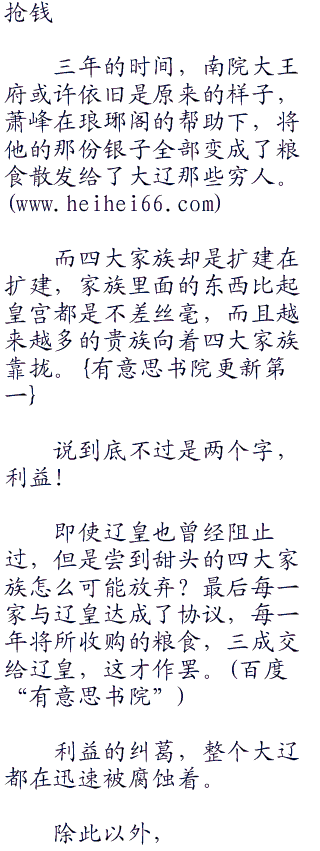 抢钱
三年的时间，南院大王
府或许依旧是原来的样子，
萧峰在琅琊阁的帮助下，将
他的那份银子全部变成了粮
食散发给了大辽那些穷人。
(www.heihei66.com)
而四大家族却是扩建在
扩建，家族里面的东西比起
皇宫都是不差丝毫，而且越
来越多的贵族向着四大家族
靠拢。{有意思书院更新第
一}
说到底不过是两个字，
利益！
即使辽皇也曾经阻止
过，但是尝到甜头的四大家
族怎么可能放弃？最后每一
家与辽皇达成了协议，每一
年将所收购的粮食，三成交
给辽皇，这才作罢。(百度
“有意思书院”)
利益的纠葛，整个大辽
都在迅速被腐蚀着。
除此以外，